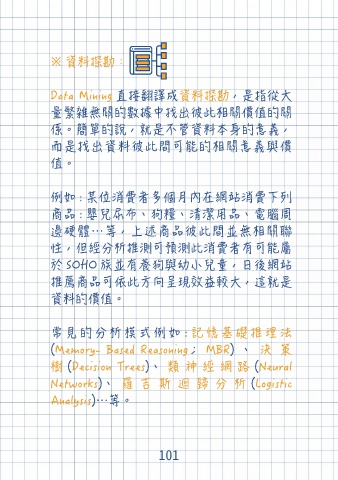 ※ 資料探勘：
Data Mining 直接翻譯成資料探勘，是指從大
量繁雜無關的數據中找出彼此相關價值的關
係。簡單的說，就是不管資料本身的意義，
而是找出資料彼此間可能的相關意義與價
值。
例如：某位消費者多個月內在網站消費下列
商品：嬰兒尿布、狗糧、清潔用品、電腦周
邊硬體…等，上述商品彼此間並無相關聯
性，但經分析推測可預測此消費者有可能屬
於 SOHO 族並有養狗與幼小兒童，日後網站
推薦商品可依此方向呈現效益較大，這就是
資料的價值。
常見的分析模式例如：記憶基礎推理法
(Memory- Based Reasoning；MBR)、決策
樹 (Decision Trees)、類神經網路 (Neural
Networks)、羅吉斯迴歸分析 (Logistic
Analysis)…等。
101